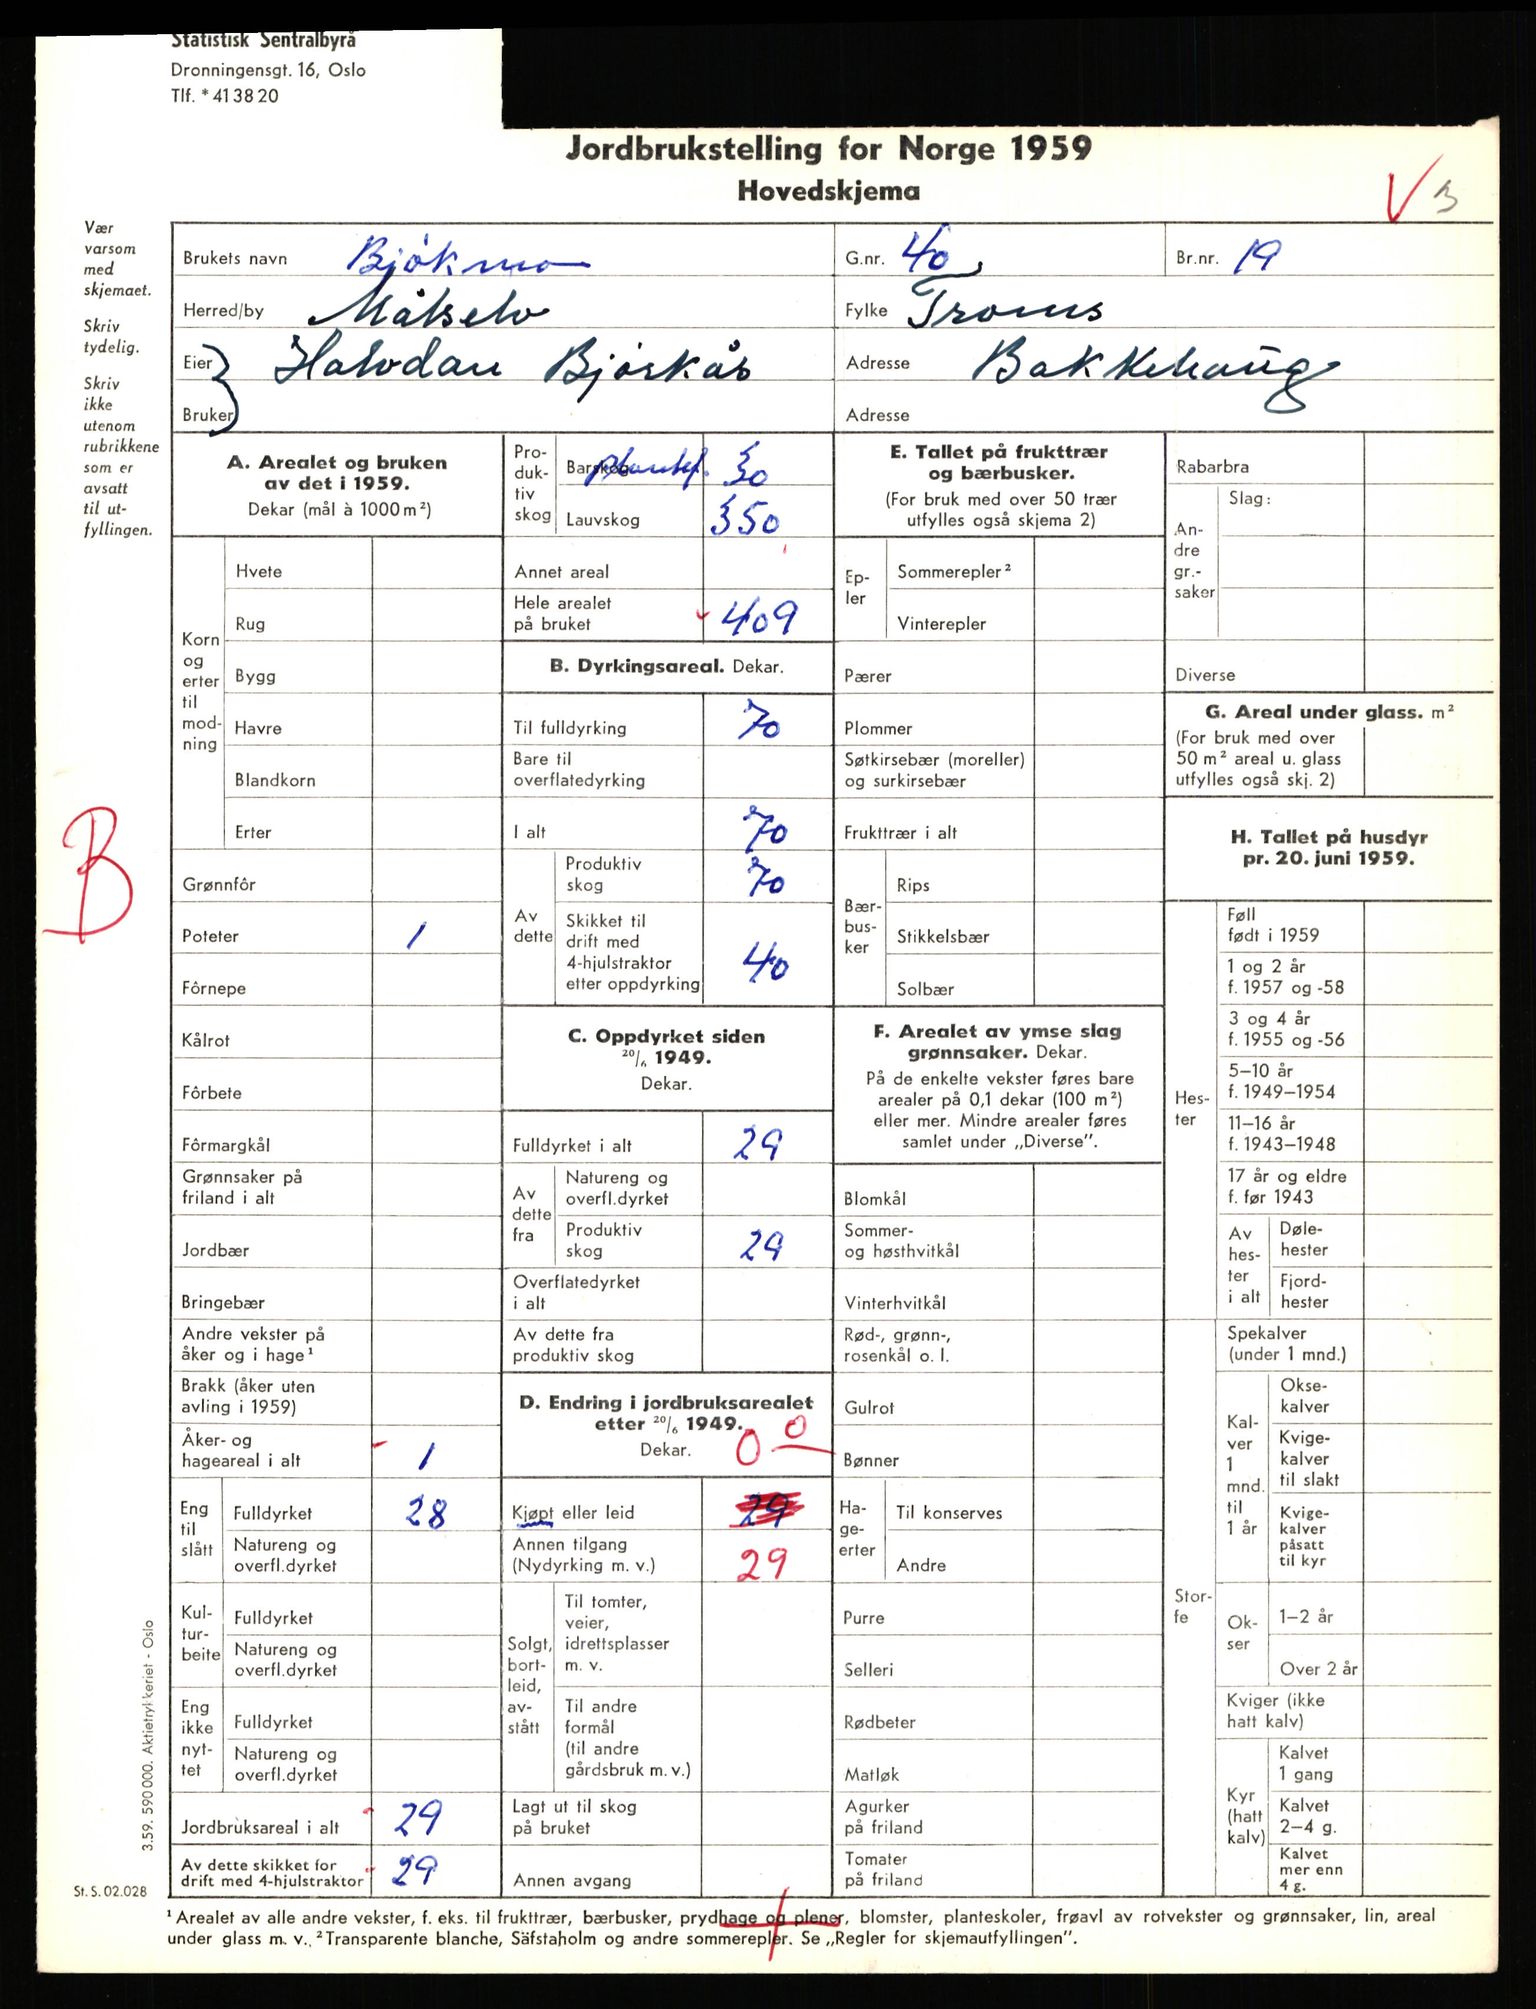 Statistisk Sentralbyrå
Dronningensgt. 16, Oslo
Tlf. * 41 38 20
Jordbrukstelling for Norge 1959
Hovedskjema
V 3
Vær
varsom
med
skjemaet.
Skriv
tydelig.
Skriv
ikke
utenom
rubrikkene
som er
avsatt
til ut-
fyllingen.
Brukets navn Bjökmo G.nr. 40, Br.nr. 19
Herred/by Målselv Fylke Troms
Eier Halvdan Bjørkås Adresse Bakkehaug
Bruker Adresse
A. Arealet og bruken
av det i 1959.
Dekar (mål à 1000 m²)
Korn
og
erter
til
mod-
ning
Hvete
Rug
Bygg
Havre
Blandkorn
Erter
B
Grønnfôr
Poteter 1
Fôrnepe
Kålrot
Fôrbete
Fôrmargkål
Grønnsaker på
friland i alt
Jordbær
Bringebær
Andre vekster på
åker og i hage¹
Brakk (åker uten
avling i 1959)
Åker- og
hageareal i alt 1
Eng
til
slått
Fulldyrket 28
Natureng og
overfl.dyrket
Kul-
tur-
beite
Fulldyrket
Natureng og
overfl.dyrket
Eng
ikke
nyt-
tet
Fulldyrket
Natureng og
overfl.dyrket
Jordbruksareal i alt 29
Av dette skikket for
drift med 4-hjulstraktor 29
Pro-
duk-
tiv
skog
Barskog plantef. 30
Lauvskog 350
Annet areal
Hele arealet
på bruket 409
B. Dyrkingsareal. Dekar.
Til fulldyrking 70
Bare til
overflatedyrking
I alt 70
Av
dette
Produktiv
skog 70
Skikket til
drift med
4-hjulstraktor
etter oppdyrking 40
C. Oppdyrket siden
20/6 1949.
Dekar.
Fulldyrket i alt 29
Av
dette
fra
Natureng og
overfl.dyrket
Produktiv
skog 29
Overflatedyrket
i alt
Av dette fra
produktiv skog
D. Endring i jordbruksarealet
etter 20/6 1949.
Dekar. 0 0
Kjøpt eller leid 29
Annen tilgang
(Nydyrking m. v.) 29
Solgt,
bort-
leid,
av-
stått
Til tomter,
veier,
idrettsplasser
m. v.
Til andre
formål
(til andre
gårdsbruk m. v.)
Lagt ut til skog
på bruket
Annen avgang
E. Tallet på frukttrær
og bærbusker.
(For bruk med over 50 trær
utfylles også skjema 2)
Ep-
ler
Sommerepler²
Vinterepler
Pærer
Plommer
Søtkirsebær (moreller)
og surkirsebær
Frukttrær i alt
Bær-
bus-
ker
Rips
Stikkelsbær
Solbær
F. Arealet av ymse slag
grønnsaker. Dekar.
På de enkelte vekster føres bare
arealer på 0,1 dekar (100 m²)
eller mer. Mindre arealer føres
samlet under „Diverse”.
Blomkål
Sommer-
og høsthvitkål
Vinterhvitkål
Rød-, grønn-,
rosenkål o. l.
Gulrot
Bønner
Ha-
ge-
erter
Til konserves
Andre
Purre
Selleri
Rødbeter
Matløk
Agurker
på friland
Tomater
på friland
Rabarbra
An-
dre
gr.-
saker
Slag:
Diverse
G. Areal under glass. m²
(For bruk med over
50 m² areal u. glass
utfylles også skj. 2)
H. Tallet på husdyr
pr. 20. juni 1959.
Hes-
ter
Føll
født i 1959
1 og 2 år
f. 1957 og -58
3 og 4 år
f. 1955 og -56
5–10 år
f. 1949–1954
11–16 år
f. 1943–1948
17 år og eldre
f. før 1943
Av
hes-
ter
i alt
Døle-
hester
Fjord-
hester
Stor-
fe
Spekalver
(under 1 mnd.)
Kal-
ver
1
mnd.
til
1 år
Okse-
kalver
Kvige-
kalver
til slakt
Kvige-
kalver
påsatt
til kyr
Ok-
ser
1–2 år
Over 2 år
Kviger (ikke
hatt kalv)
Kyr
(hatt
kalv)
Kalvet
1 gang
Kalvet
2–4 g.
Kalvet
mer enn
4 g.
3.59. 590 000. Aktietrykkeriet - Oslo
St. S. 02.028
¹ Arealet av alle andre vekster, f. eks. til frukttrær, bærbusker, prydhage og plener, blomster, planteskoler, frøavl av rotvekster og grønnsaker, lin, areal
under glass m. v. ² Transparente blanche, Säfstaholm og andre sommerepler. Se „Regler for skjemautfyllingen”.